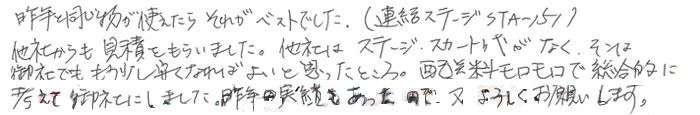 昨年と同じ物が使えたら それが ベストでした。(連結ステージSTA-151)
他社からも 見積をもらいました。他社は ステージ・スカートが なく、そこは
御社でも もう少し安くなればよいと思ったところ。配送料モロモロで総合的に
考えて御社にしました。昨年の実績もあったので、又 よろしくお願いします。